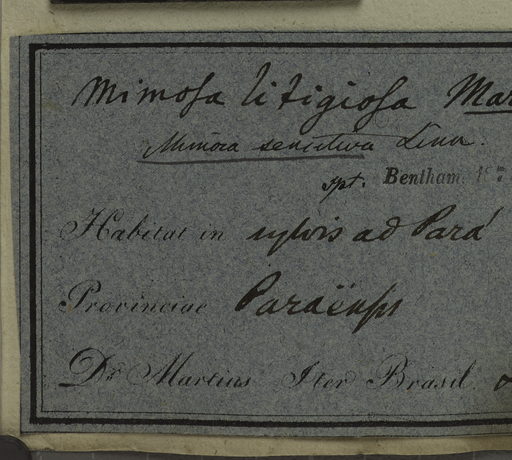 Mimosa litigiosa Mar
Mimosa sensitiva Linn.
spt. Bentham. 187
Habitat in sylvis ad Pará
Provinciae Paraënsis
Dr. Martius Iter Brasil